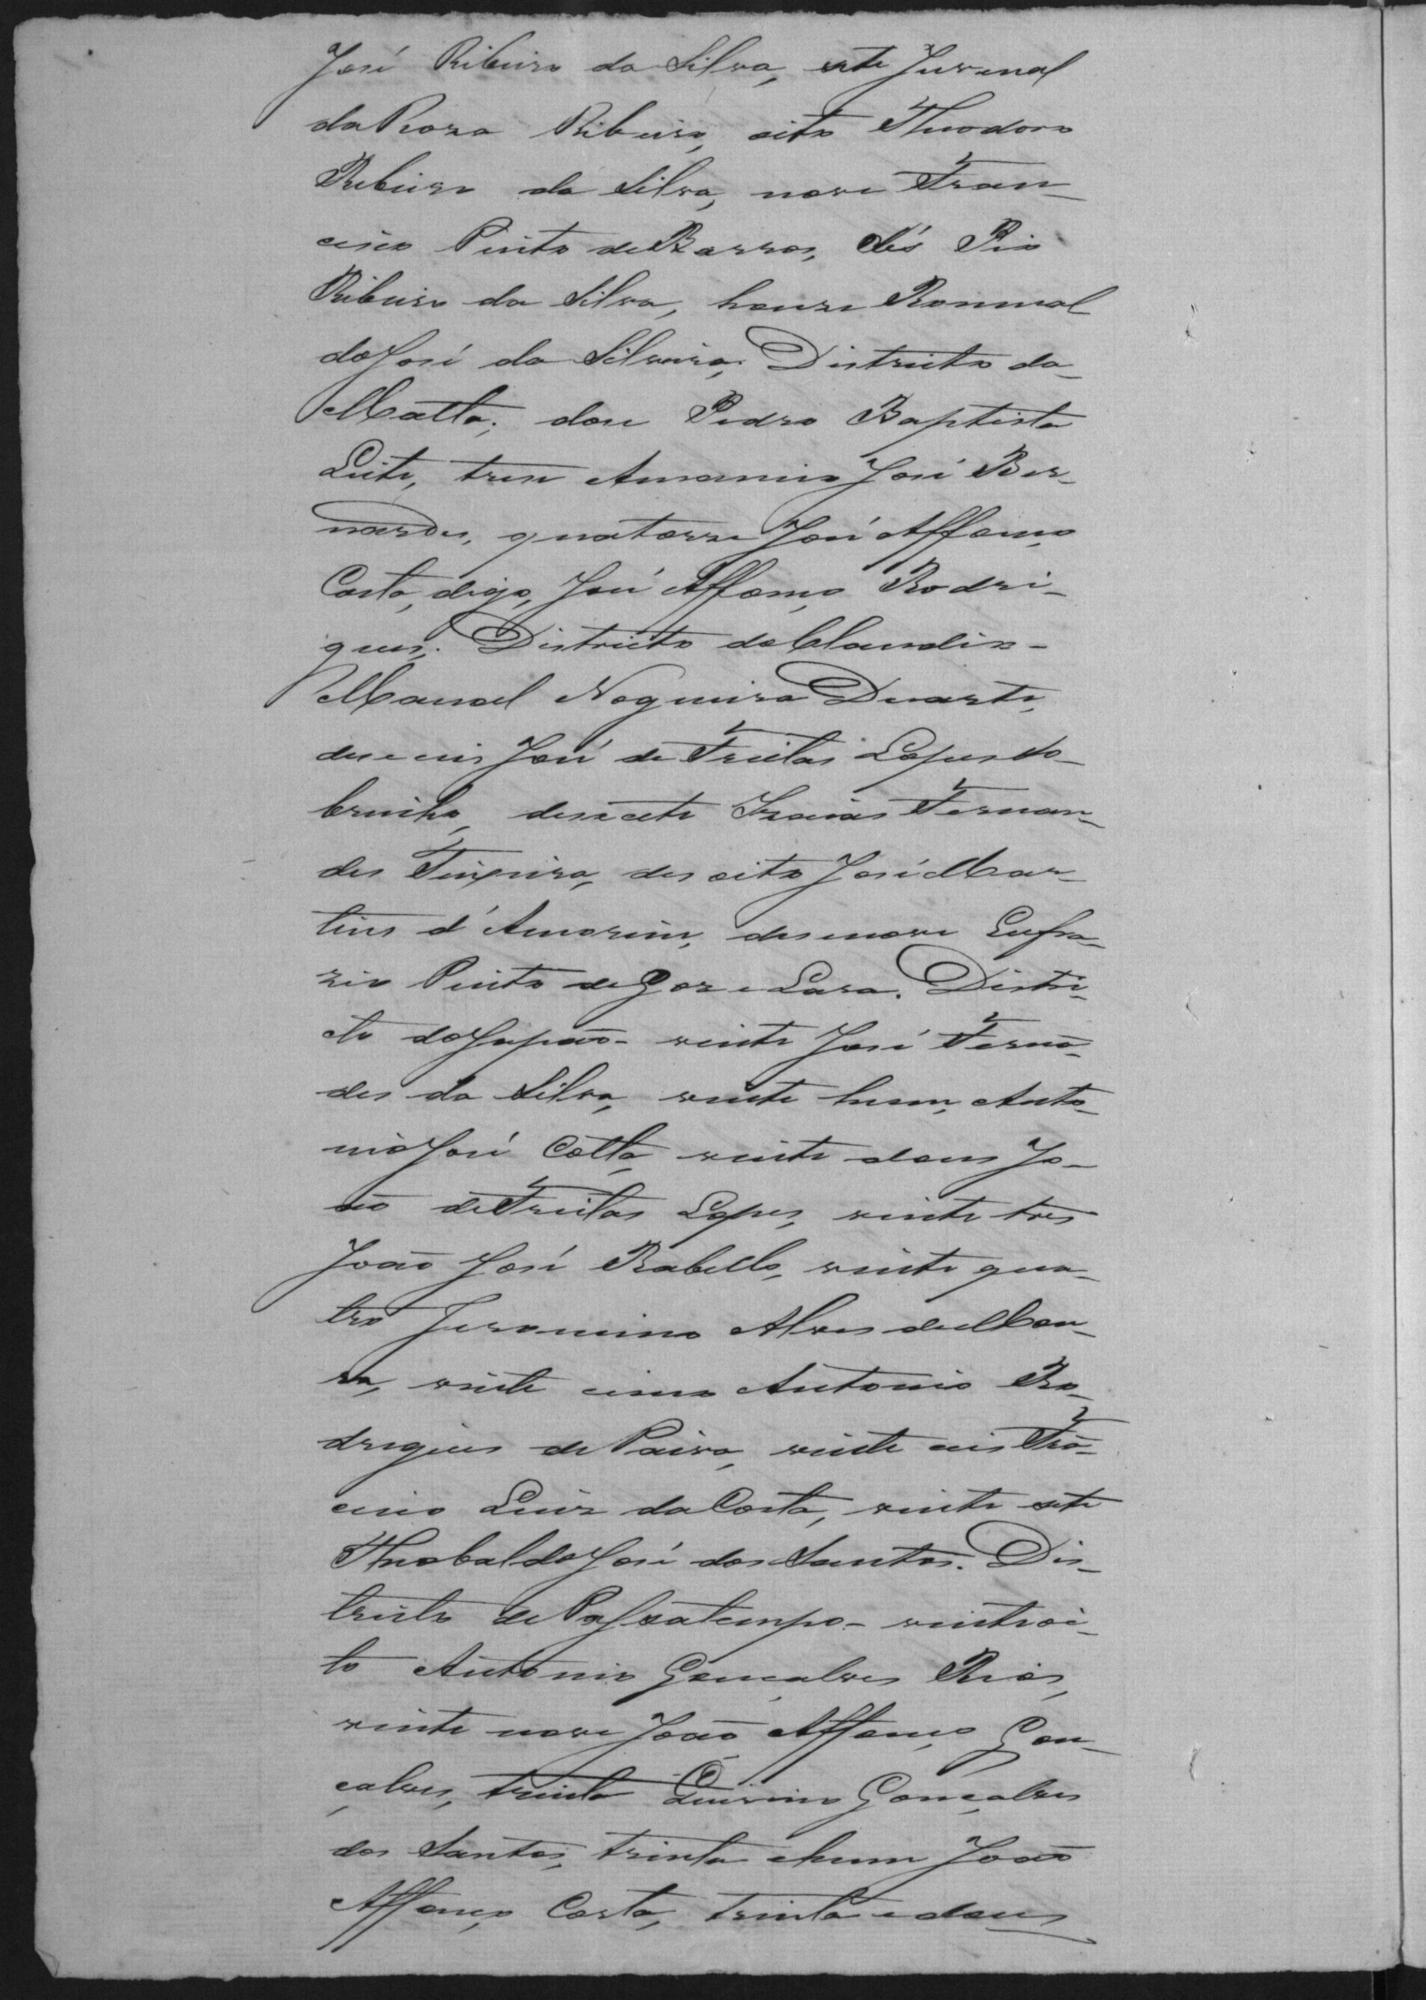 José Ribeiro da Silva, sete Juvenal
da Roza Ribeiro, oito Theodoro
Ribeiro da Silva, nove Fran-
cisco Pinto de Barros, dés Pio
Ribeiro da Silva, honze Romual
do José da Silveira, Districto da
Matta; dose Pedro Baptista
Leite, trese Amancio José Ber-
nardes, quatorze José Affonço
Costa, digo, José Affonço Rodri-
gues. Districto do Claudio -
Manoel Nogueira Duarte,
deseceis José de Freitas Lopes So-
brinho, desecete Izaias Fernan-
des Teixeira, des oito José Mar-
tins d'Amorim, des enove Eufra-
zio Pinto de Goz e Lara. Distri-
cto do Japão - vinte José Fernã-
des da Silva, vinte hum, Anto-
nio José Cotta, vinte dous Jo-
ão de Freitas Lopes, vinte tres
João José Rabello, vinte qua-
tro Jeronimo Alves de Mou-
ra, vinte cinco Antonio Ro-
drigues de Paiva, vinte ceis Frã-
cino Luiz da Costa, vinte sete
Theobaldo José dos Santos. Dis-
tricto de Passatempo - vinte oi-
to Antonio Gonçalves Rios,
vinte nove João Affonço Gon-
çalves, trinta Quirino Gonçalves
dos Santos, trinta e hum João
Affonço Costa, trinta e dous